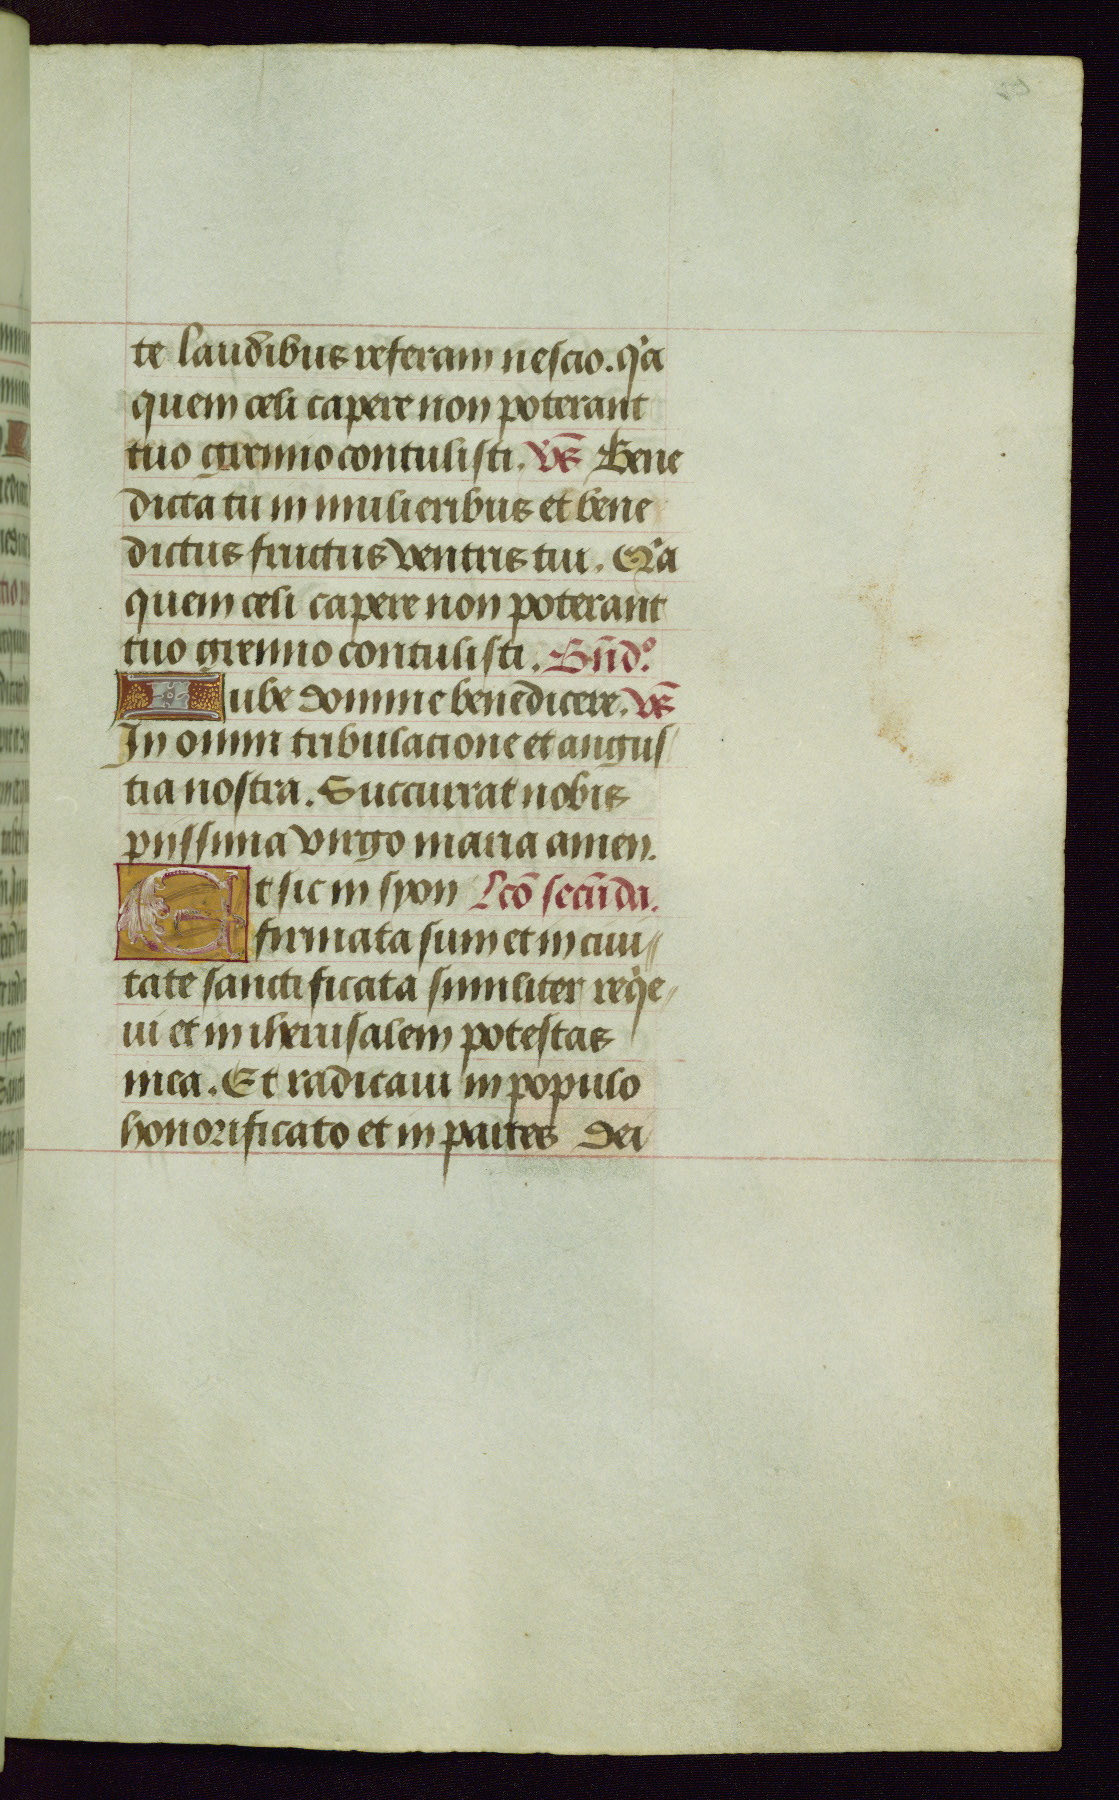 te laudibus referam nescio. q̇a
quem celi capere non poterant
tuo gremio contulisti. v̄s Bene
dicta tu in mulieribus et bene
dictus fructus ventris tui. Q̇a
quem celi capere non poterant
tuo gremio contulisti. Bn̄dº.
Iube domine benedicere. v̄s
In omni tribulacione et angus/
tia nostra. Succurrat nobis
piissima virgo maria amen.
Et sic in syon Lcō secūda.
firmata sum et in ciui//
tate sanctificata similiter req̇e/
ui et in iherusalem potestas
mea. Et radicaui in populo
honorificato et in partes dei